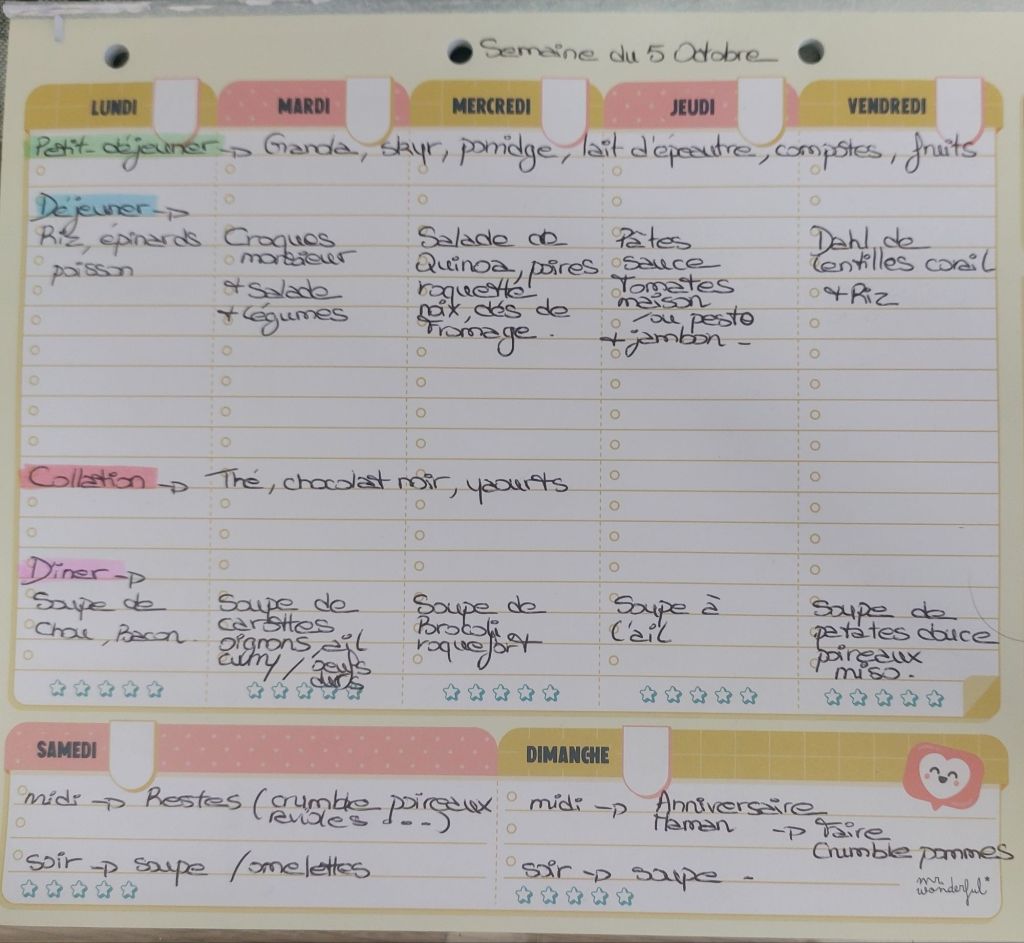 Semaine du 5 Octobre
LUNDI
MARDI
MERCREDI
JEUDI
VENDREDI
Petit-déjeuner → Granola, skyr, porridge, lait d'épeautre, compotes, fruits
Déjeuner →
Riz, épinards
poisson
Croques
monsieur
+ Salade
+ légumes
Salade de
Quinoa, poires
roquette
noix, dés de
fromage.
Pâtes
sauce
tomates
maison
/ou pesto
+ jambon -
Dahl de
lentilles corail
+ Riz
Collation → Thé, chocolat noir, yaourts
Dîner →
Soupe de
Chou, Bacon
Soupe de
carottes
oignons, ail
curry / oeufs
durs
Soupe de
Brocoli
roquefort
Soupe à
l'ail
Soupe de
patates douce
poireaux
miso.
SAMEDI
midi → Restes (crumble poireaux
...)
soir → soupe / omelettes
DIMANCHE
midi → Anniversaire
Maman → Faire
Crumble pommes
soir → soupe -
mr
wonderful*